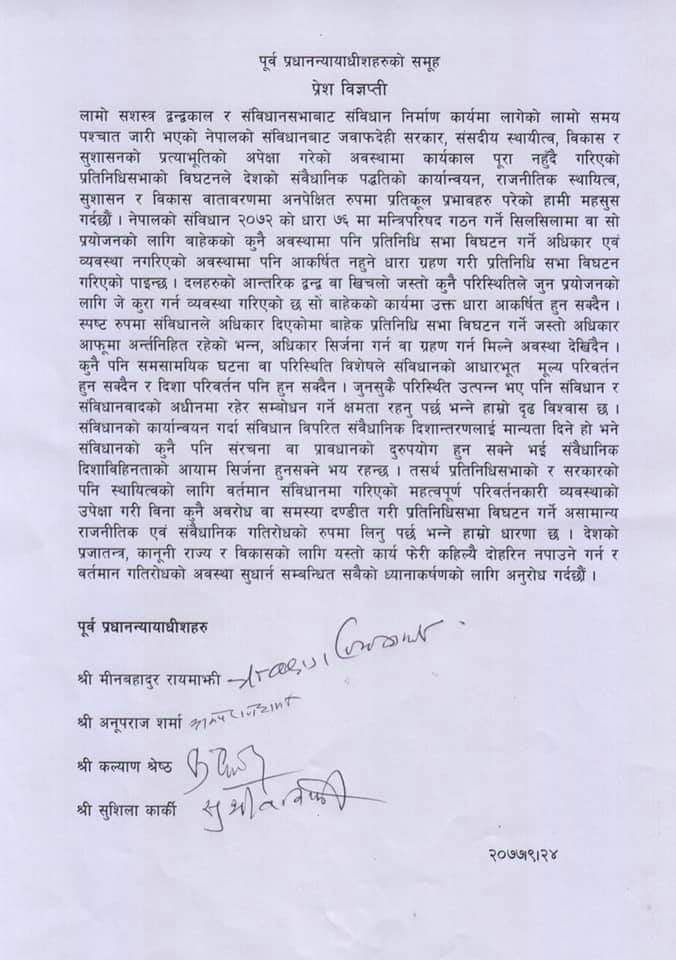 पूर्व प्रधानन्यायाधीशहरुको समूह
प्रेश विज्ञप्ती
लामो सशस्त्र द्वन्द्वकाल र संविधानसभाबाट संविधान निर्माण कार्यमा लागेको लामो समय
पश्चात जारी भएको नेपालको संविधानबाट जवाफदेही सरकार, संसदीय स्थायीत्व, विकास र
सुशासनको प्रत्याभूतिको अपेक्षा गरेको अवस्थामा कार्यकाल पूरा नहुँदै गरिएको
प्रतिनिधिसभाको विघटनले देशको संवैधानिक पद्धतिको कार्यान्वयन, राजनीतिक स्थायित्व,
सुशासन र विकास वातावरणमा अनपेक्षित रुपमा प्रतिकूल प्रभावहरु परेको हामी महसुस
गर्दछौं । नेपालको संविधान २०७२ को धारा ७६ मा मन्त्रिपरिषद गठन गर्ने सिलसिलामा वा सो
प्रयोजनको लागि बाहेकको कुनै अवस्थामा पनि प्रतिनिधि सभा विघटन गर्ने अधिकार एवं
व्यवस्था नगरिएको अवस्थामा पनि आकर्षित नहुने धारा ग्रहण गरी प्रतिनिधि सभा विघटन
गरिएको पाइन्छ । दलहरुको आन्तरिक द्वन्द्व वा खिचलो जस्तो कुनै परिस्थितिले जुन प्रयोजनको
लागि जे कुरा गर्न व्यवस्था गरिएको छ सो वाहेकको कार्यमा उक्त धारा आकर्षित हुन सक्दैन ।
स्पष्ट रुपमा संविधानले अधिकार दिएकोमा बाहेक प्रतिनिधि सभा विघटन गर्ने जस्तो अधिकार
आफूमा अर्न्तनिहित रहेको भन्न, अधिकार सिर्जना गर्न वा ग्रहण गर्न मिल्ने अवस्था देखिँदैन ।
कुनै पनि समसामयिक घटना वा परिस्थिति विशेषले संविधानको आधारभूत मूल्य परिवर्तन
हुन सक्दैन र दिशा परिवर्तन पनि हुन सक्दैन । जुनसुकै परिस्थिति उत्पन्न भए पनि संविधान र
संविधानवादको अधीनमा रहेर सम्बोधन गर्ने क्षमता रहनु पर्छ भन्ने हाम्रो दृढ विश्वास छ ।
संविधानको कार्यान्वयन गर्दा संविधान विपरित संवैधानिक दिशान्तरणलाई मान्यता दिने हो भने
संविधानको कुनै पनि संरचना वा प्रावधानको दुरुपयोग हुन सक्ने भई संवैधानिक
दिशाविहिनताको आयाम सिर्जना हुनसक्ने भय रहन्छ । तसर्थ प्रतिनिधिसभाको र सरकारको
पनि स्थायित्वको लागि वर्तमान संविधानमा गरिएको महत्वपूर्ण परिवर्तनकारी व्यवस्थाको
उपेक्षा गरी विना कुनै अवरोध वा समस्या दण्डीत गरी प्रतिनिधिसभा विघटन गर्ने असामान्य
राजनीतिक एवं संवैधानिक गतिरोधको रुपमा लिनु पर्छ भन्ने हाम्रो धारणा छ । देशको
प्रजातन्त्र, कानूनी राज्य र विकासको लागि यस्तो कार्य फेरी कहिल्यै दोहरिन नपाउने गर्न र
वर्तमान गतिरोधको अवस्था सुधार्न सम्बन्धित सबैको ध्यानाकर्षणको लागि अनुरोध गर्दछौं ।
पूर्व प्रधानन्यायाधीशहरु
श्री मीनबहादुर रायमाझी
श्री अनूपराज शर्मा
श्री कल्याण श्रेष्ठ
श्री सुशिला कार्की
२०७७।९।२४